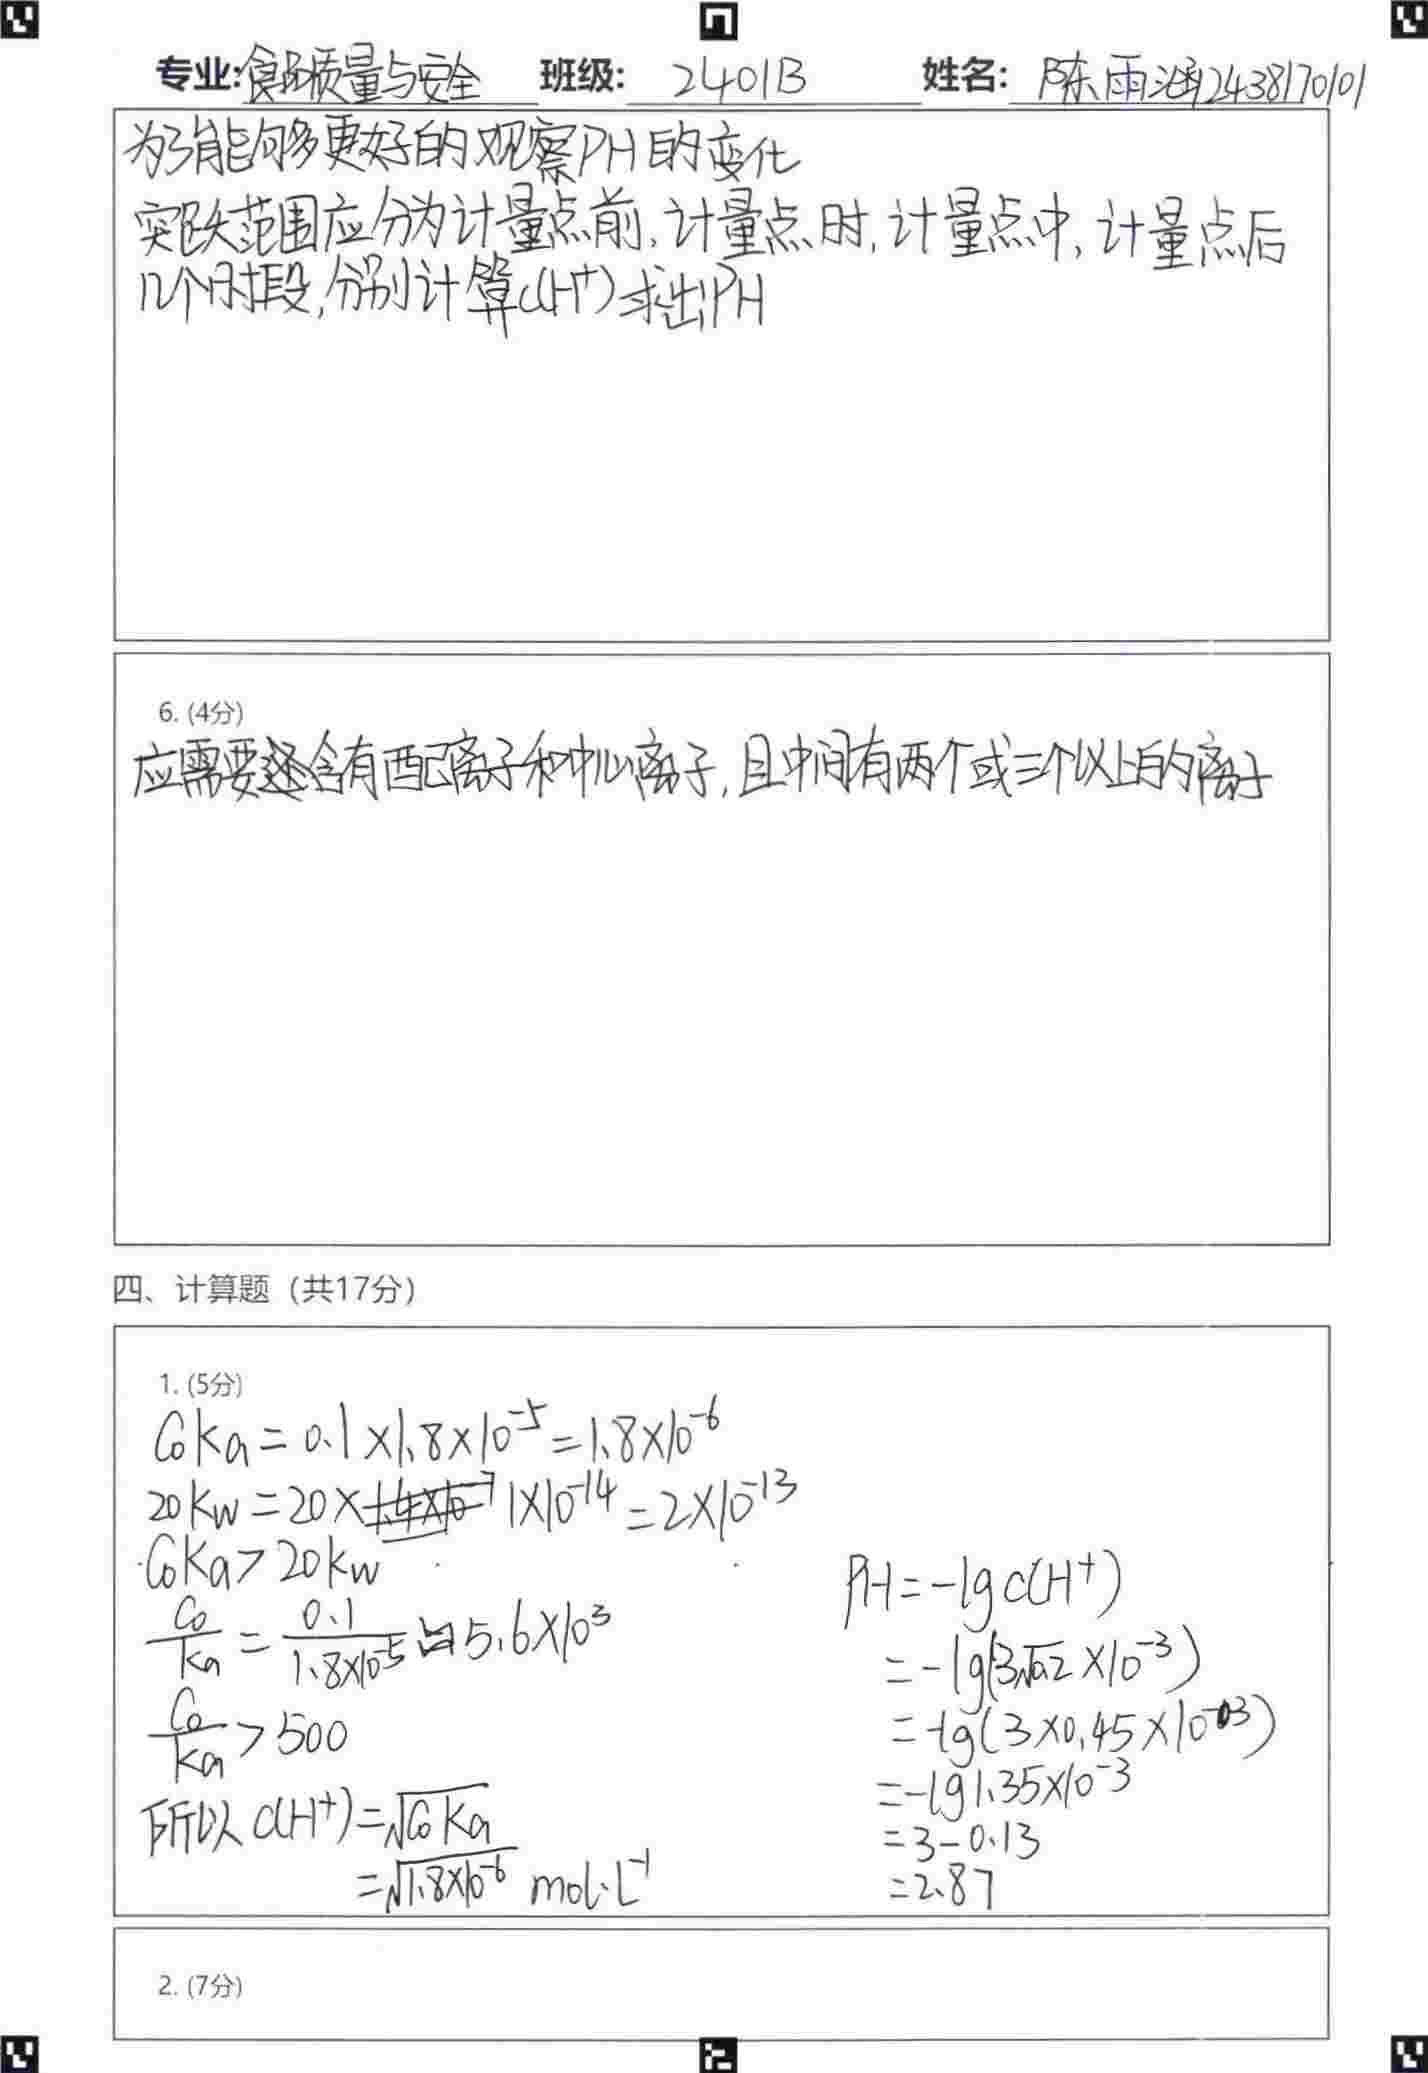 专业:食品质量与安全 班级: 2401B 姓名: 陈雨涵2438170101
为了能够更好的观察PH的变化
突跃范围应分为计量点前,计量点时,计量点中,计量点后
几个时段,分别计算c(H⁺)求出PH
6. (4分)
应需要还含有配离子和中心离子,且中间有两个或三个以上的离子
四、计算题（共17分）
1. (5分)
C₀Ka=0.1×1.8×10⁻⁵=1.8×10⁻⁶
20Kw=20×1×10⁻¹⁴=2×10⁻¹³
C₀Ka>20Kw
C₀/Ka=0.1/1.8×10⁻⁵≈5.6×10³
C₀/Ka>500
所以c(H⁺)=√C₀Ka
=√1.8×10⁻⁶ mol·L⁻¹
PH=-lgc(H⁺)
=-lg(3√0.2×10⁻³)
=-lg(3×0.45×10⁻³)
=-lg1.35×10⁻³
=3-0.13
=2.87
2. (7分)